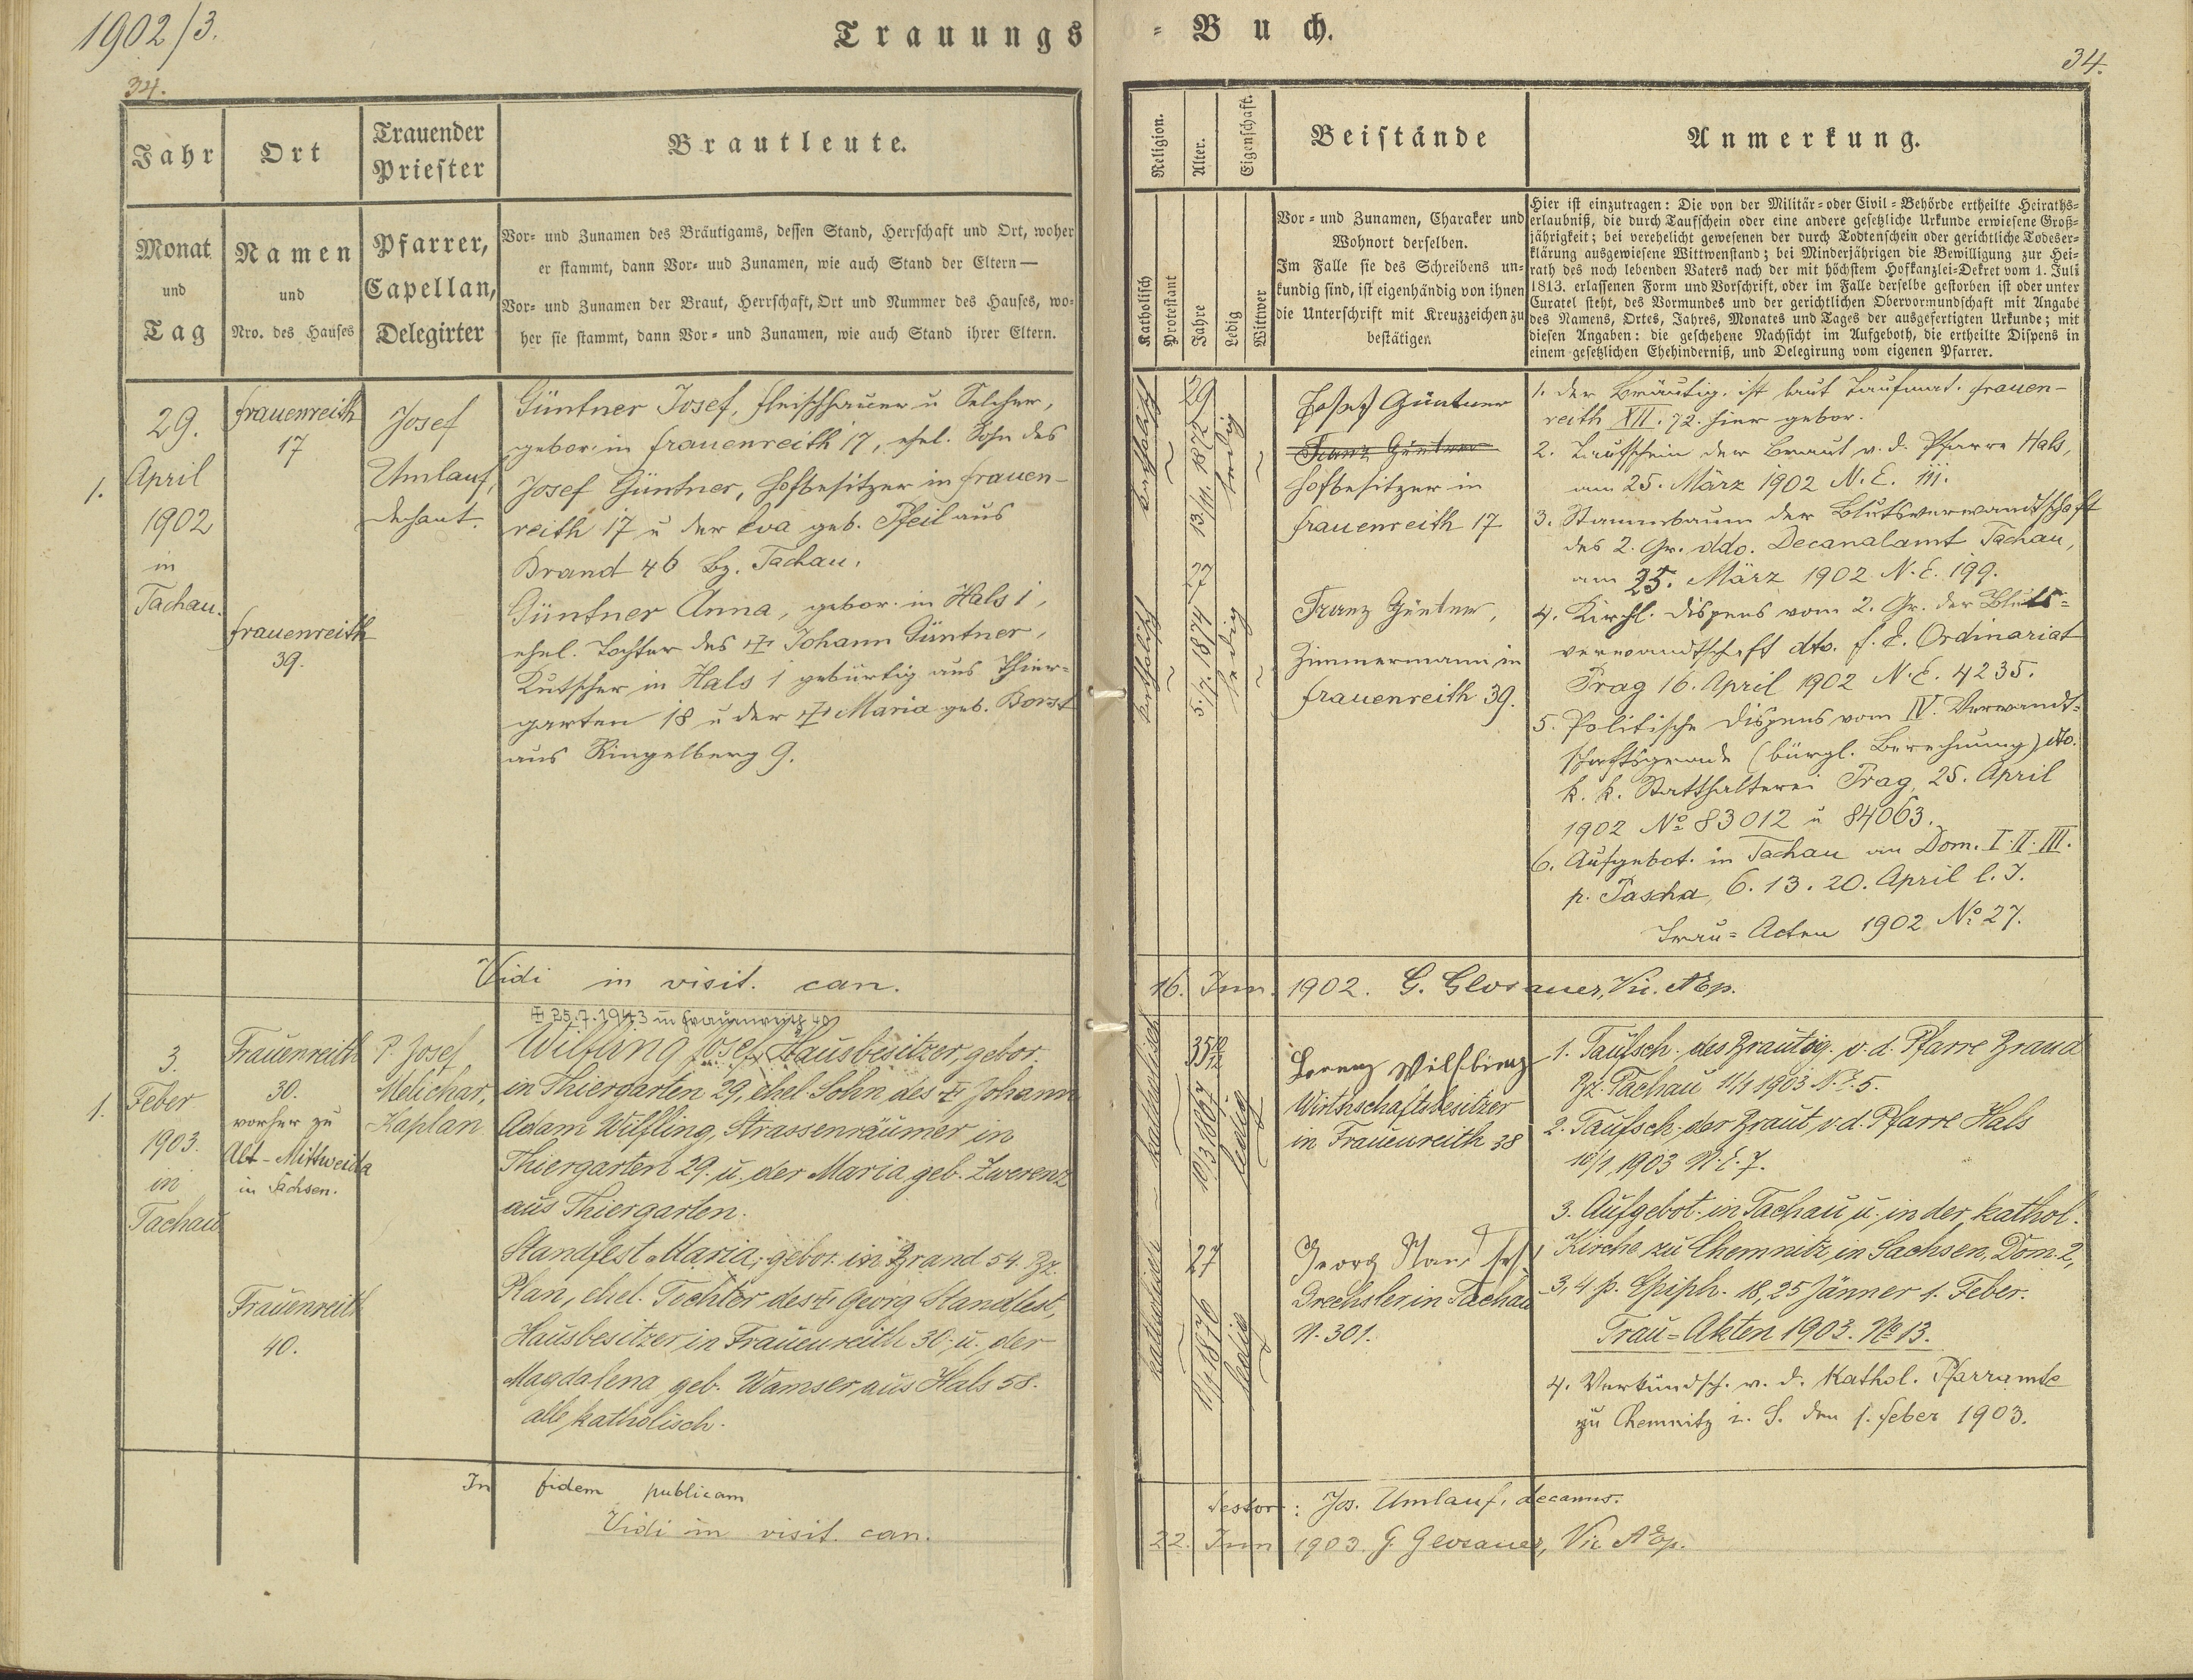 1902/3.
Trauungs-Buch.
34.
34.
Jahr
Ort
Trauender
Priester
Brautleute.
Monat
und
Tag
Namen
und
Nro. des Hauses
Pfarrer,
Capellan,
Delegirter
Vor- und Zunamen des Bräutigams, dessen Stand, Herrschaft und Ort, woher
er stammt, dann Vor- und Zunamen, wie auch Stand der Eltern —
Vor- und Zunamen der Braut, Herrschaft, Ort und Nummer des Hauses, wo-
her sie stammt, dann Vor- und Zunamen, wie auch Stand ihrer Eltern.
Religion.
Alter.
Eigenschaft.
Beistände
Anmerkung.
Katholisch
Protestant
Jahre
Ledig
Wittwer
Vor- und Zunamen, Charaker und
Wohnort derselben.
Im Falle sie des Schreibens un-
kundig sind, ist eigenhändig von ihnen
die Unterschrift mit Kreuzzeichen zu
bestätigen
Hier ist einzutragen: Die von der Militär- oder Civil-Behörde ertheilte Heiraths-
erlaubniß, die durch Taufschein oder eine andere gesetzliche Urkunde erwiesene Groß-
jährigkeit; bei verehelicht gewesenen der durch Todtenschein oder gerichtliche Todeser-
klärung ausgewiesene Wittwenstand; bei Minderjährigen die Bewilligung zur Hei-
rath des noch lebenden Vaters nach der mit höchstem Hofkanzlei-Dekret vom 1. Juli
1813. erlassenen Form und Vorschrift, oder im Falle derselbe gestorben ist oder unter
Curatel steht, des Vormundes und der gerichtlichen Obervormundschaft mit Angabe
des Namens, Ortes, Jahres, Monates und Tages der ausgefertigten Urkunde; mit
diesen Angaben: die geschehene Nachsicht im Aufgeboth, die ertheilte Dispens in
einem gesetzlichen Ehehinderniß, und Delegirung vom eigenen Pfarrer.
1.
29.
April
1902
in
Tachau.
Frauenreith
17
Frauenreith
39.
Josef
Umlauf,
Dechant.
Güntner Josef, Fleischhauer u Selcher,
gebor. in Frauenreith 17, ehel. Sohn des
Josef Güntner, Hofbesitzer in Frauen-
reith 17 u der Eva geb. Pfeil aus
Brand 46 Bz. Tachau.
Güntner Anna, gebor. in Hals 1,
ehel. Tochter des ✠ Johann Güntner,
Kutscher in Hals 1 gebürtig aus Thier-
garten 18 u der ✠ Maria geb. Borst
aus Ringelberg 9.
katholisch
29
13/11. 1872
ledig
katholisch
27
5./7. 1874
ledig
Josef Güntner
Franz Güntner
Hofbesitzer in
Frauenreith 17
Franz Güntner,
Zimmermann in
Frauenreith 39.
1. Der Bräutig. ist laut Taufmat. Frauen-
reith XII. 72. hier gebor.
2. Taufschein der Braut v. d. Pfarre Hals,
am 25. März 1902 N. E. 111.
3. Stammbaum der Blutsverwandtschaft
des 2. Gr. ddo. Decanalamt Tachau,
am 25. März 1902 N. E. 199.
4. Kirchl. Dispens vom 2. Gr. der Bluts-
verwandtschaft dto. f. E. Ordinariat
Prag 16. April 1902 N. E. 4235.
5. Politische Dispens vom IV. Verwandt-
schaftsgrade (bürgl. Berechnung) dto.
k. k. Statthalterei Prag, 25. April
1902 No 83012 u 84063.
6. Aufgebot. in Tachau an Dom. I. II. III.
p. Pascha, 6. 13. 20. April l. J.
Trau-Acten 1902 No 27.
Vidi in visit. can.
16. Jun. 1902. G. Glosauer, Vic. AEp.
✠ 25.7.1943 in Frauenreith 40
1.
3.
Feber
1903.
in
Tachau
Frauenreith
30.
vorher zu
Alt-Mittweida
in Sachsen.
Frauenreith
40.
P. Josef
Melichar,
Kaplan
Wilfling Josef, Hausbesitzer, gebor.
in Thiergarten 29, ehel. Sohn des ✠ Johann
Adam Wilfling, Strassenräumer in
Thiergarten 29. u. der Maria, geb. Zwerenz
aus Thiergarten.
Standfest Maria, gebor. in Brand 54. Bz.
Plan, ehel. Tochter des ✠ Georg Standfest,
Hausbesitzer in Frauenreith 30. u. der
Magdalena geb. Wamser aus Hals 58.
alle katholisch.
katholisch
35 10/12
10/3 1867
ledig
katholisch
27
11/1 1876
ledig
Lorenz Wilfling
Wirthschaftsbesitzer
in Frauenreith 38
Georg Standfest
Drechsler in Tachau
N. 301.
1. Taufsch. des Bräutig. v. d. Pfarre Brand
Bz. Tachau 11/1 1903 N. E. 5.
2. Taufsch. der Braut, v d. Pfarre Hals
10/1 1903 N. E. 7.
3. Aufgebot. in Tachau u. in der kathol.
Kirche zu Chemnitz in Sachsen, Dom. 2,
3, 4. p. Epiph. 18, 25 Jänner 1. Feber.
Trau-Akten 1903. No 13.
4. Verkündsch. v. d. Kathol. Pfarramte
zu Chemnitz i. S. den 1. Feber 1903.
In fidem publicam
testor: Jos. Umlauf, decanus.
Vidi in visit. can.
22. Jun 1903. G. Glosauer, Vic AEp.